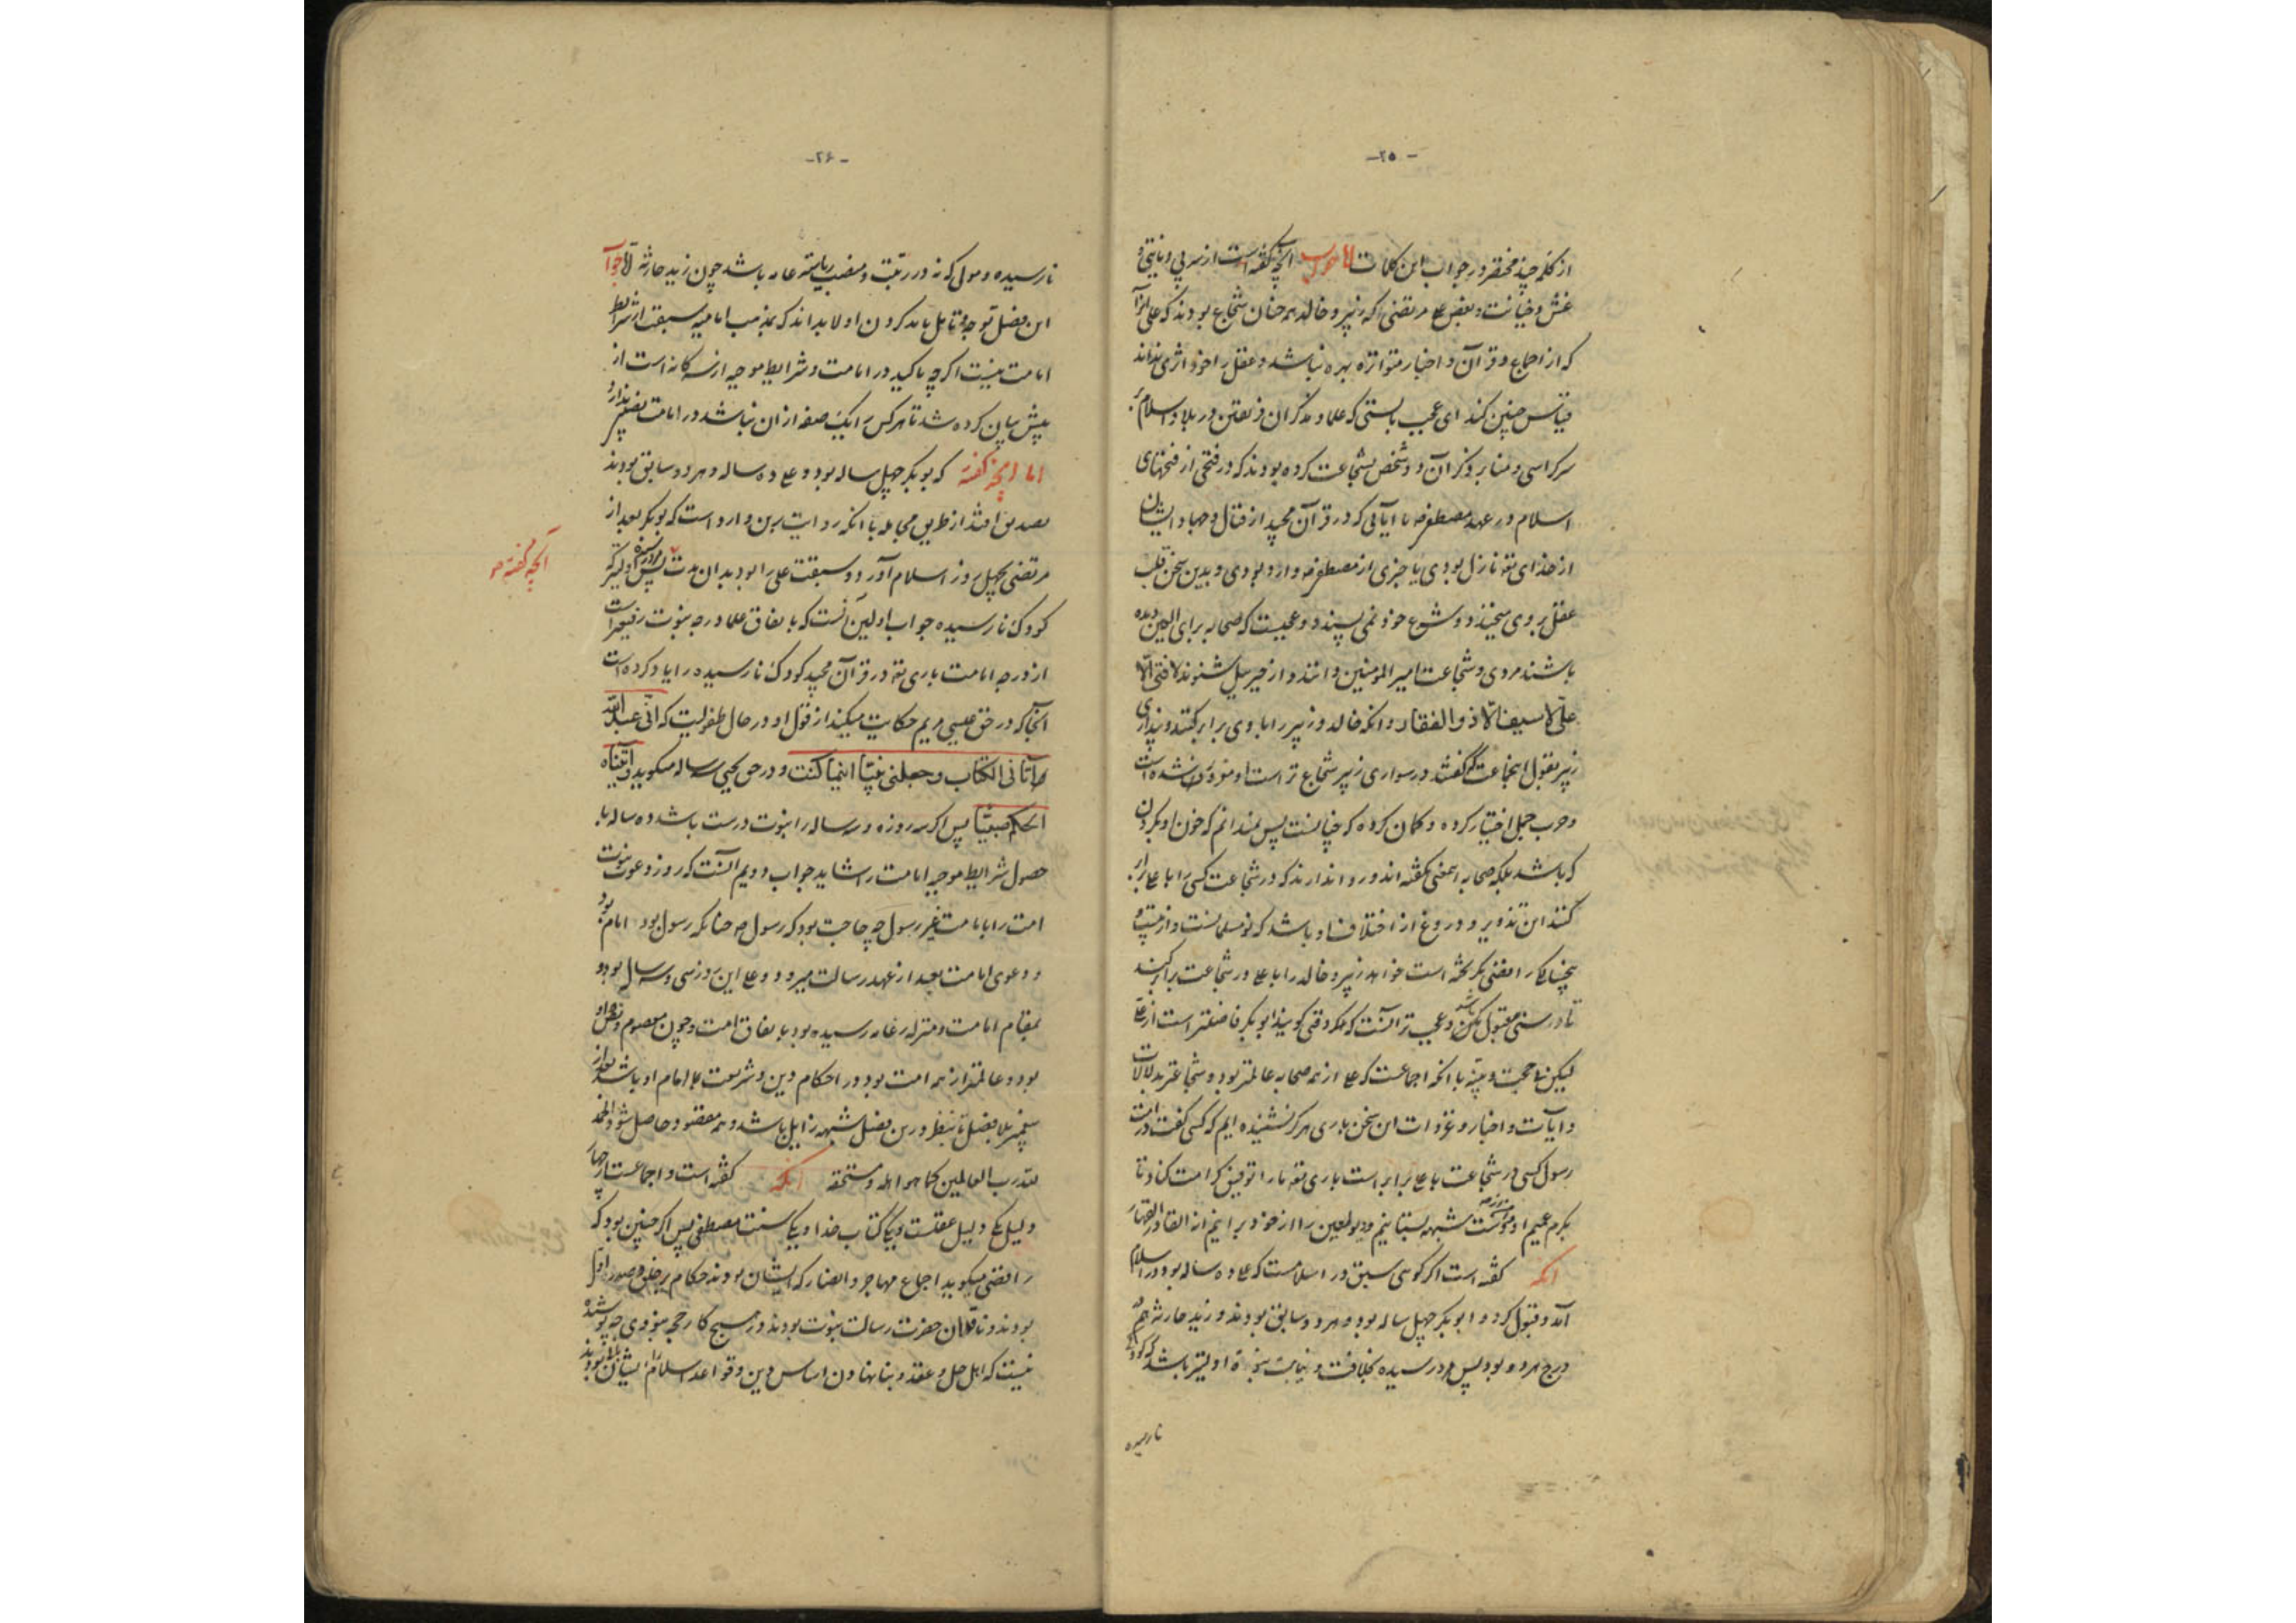 -۲۵-
از کلمه چند مختصر در جواب این کلمات الجواب آنچه گفته است از سر بی دیانتی و
غش و خیانت و بغض علی مرتضی که زبیر و خالد همچنان شجاع بودند که علی امّا
که از اجماع و قرآن و اخبار متواتره بهره نباشد و عقل را خود اثری نداند
قیاس چنین کند ای عجب بایستی که علما و مذکران و در بلاد اسلام بر
سر کراسی و منابر ذکر آن دو شخص بشجاعت کرده بودند که در فتحی از فتحهای
اسلام در عهد مصطفی ص با آیاتی که در قرآن مجید از قتال و جهاد ایشان
از خدای تعه نازل بودی یا خبری از مصطفی ص وارد بودی و بدین سخن قلب
عقل بر وی میخندد و شرع خود نمی پسندد و عجبست که صحابه برای العین دیده
باشند مردی و شجاعت امیر المومنین و دانند و از جبرییل شنوند لا فتی الّا
علیّ لا سیف الّا ذو الفقار و آنکه خالد و زبیر را با وی برابر کنند و پنداری
زبیر بقول اینجماعت که گفتند در سواری زبیر شجاع تر است او مغرور شده است
و حرب جمل اختیار کرده و گمان کرده که چنانست پس نمیدانم که خون او بگردن
که باشد بلکه صحابه اینمعنی نگفته اند و روا ندارند که در شجاعت کسی را با علی برابر
کنند این تزویر و دروغ از اختلاف او باشد که نو مسلمانست و از
همچنانکه رافضی بگریخته است خواهد زبیر و خالد را با علی در شجاعت برابر کند
تا در سنی مقبول باشد و عجب تر آنست که هر وقتی گویند ابوبکر فاضلتر است از علی
لیکن نه حجت و بینه با آنکه اجماعست که علی از همه صحابه عالمتر بود و شجاعتر بدلالات
و آیات و اخبار و غزوات این سخن باری هرگز نشنیده ایم که کسی گفت در امت
رسول کسی در شجاعت با علی برابر است باری تعه ما را توفیق کرامت کناد تا
بکرم عمیم او شبهه بستانیم و دیو لعین را از خود برانیم انه القادر القهار
آنکه گفته است اگر گوئی سبق در اسلامست که علی ده ساله بود در اسلام
آمد و قبول کرد و ابوبکر چهل ساله بود و هر دو سابق بودند و زید حارثه هم
درج هر دو بود پس مرد رسیده بخلافت و نیابت اولیتر باشد که کودک
نارسیده
-۲۶-
نارسیده و مولی که نه در رتبت و منصب ریاسته عامه باشد چون زید حارثه امّا جواب
این فصل توجه و تأمل باید کردن اولا بداند که بمذهب امامیه سبقت از شرایط
امامت نیست اگر چه تاکید در امامت و شرایط موجبه از سه گانه است از
پیش بیان کرده شد تا هر کس را یک صفه از آن نباشد در امامت نصیبی ندارد
اما آنچه گفته که بوبکر چهل ساله بود و علی ده ساله و هر دو سابق بودند
تصدیق افتد از طریق مجامله با آنکه روایت برین وارد است که بوبکر بعد از
آنچه گفته ص
مرتضی بچهل روز اسلام آورد و سبقت علی را بود بدان مدت پس مرد رسیده اولیتر که
کودک نارسیده جواب اولین آنست که باتفاق علما درجه نبوت رفیعتر است
از درجه امامت باری تعه در قرآن مجید کودک نارسیده را یاد کرده است
آنجا که در حق عیسی مریم حکایت میکند از قول او در حال طفولیت که انّی عبد الله
اتانی الکتاب و جعلنی نبیّا اینما کنت و در حق یحیی سه ساله میگوید و آتیناه
الحکم صبیّا پس اگر سه روزه و سه ساله را نبوت درست باشد ده ساله با
حصول شرایط موجبه امامت را شاید جواب دویم آنست که روز دعوت نبوت
امت را با امامت غیر رسول چه حاجت بود که رسول ص چنانکه رسول بود امام بود
و دعوی امامت بعد از عهد رسالت میرود و علی این روز سی و سه سال بود و
بمقام امامت و منزله رسیده بود باتفاق امت و چون معصوم و
بود و عالمتر از همه امت بود در احکام دین و شریعت امام او باشد بعد از
پیغمبر بلا فصل تا بنظر درین فصل شبهه زایل باشد و همه مقصود حاصل شود الحمد
لله رب العالمین کما هو اهله و مستحقه آنکه گفته است و اجماعست از چهار
دلیل یکی دلیل عقلست و یکی کتاب خدا و یکی سنت مصطفی پس اگر چنین بود که
رافضی میگوید اجماع مهاجر و انصار که ایشان بودند حکام بر خلق و صدر اول
بودند و ناقلان حضرت رسالت نبوت بودند و هیچ کار پوشیده
نیست که اهل حل و عقد و بنا نهادن اساس دین و قواعد اسلام ایشان بودند